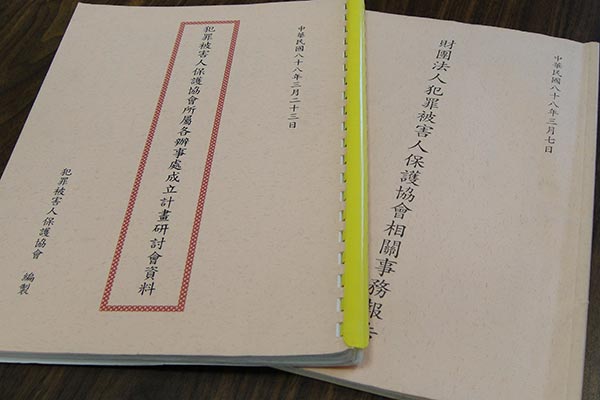 中華民國八十八年三月二十三日
犯罪被害人保護協會所屬各辦事處成立計畫研討會資料
犯罪被害人保護協會　編製
中華民國八十八年三月七日
財團法人犯罪被害人保護協會相關事務報告